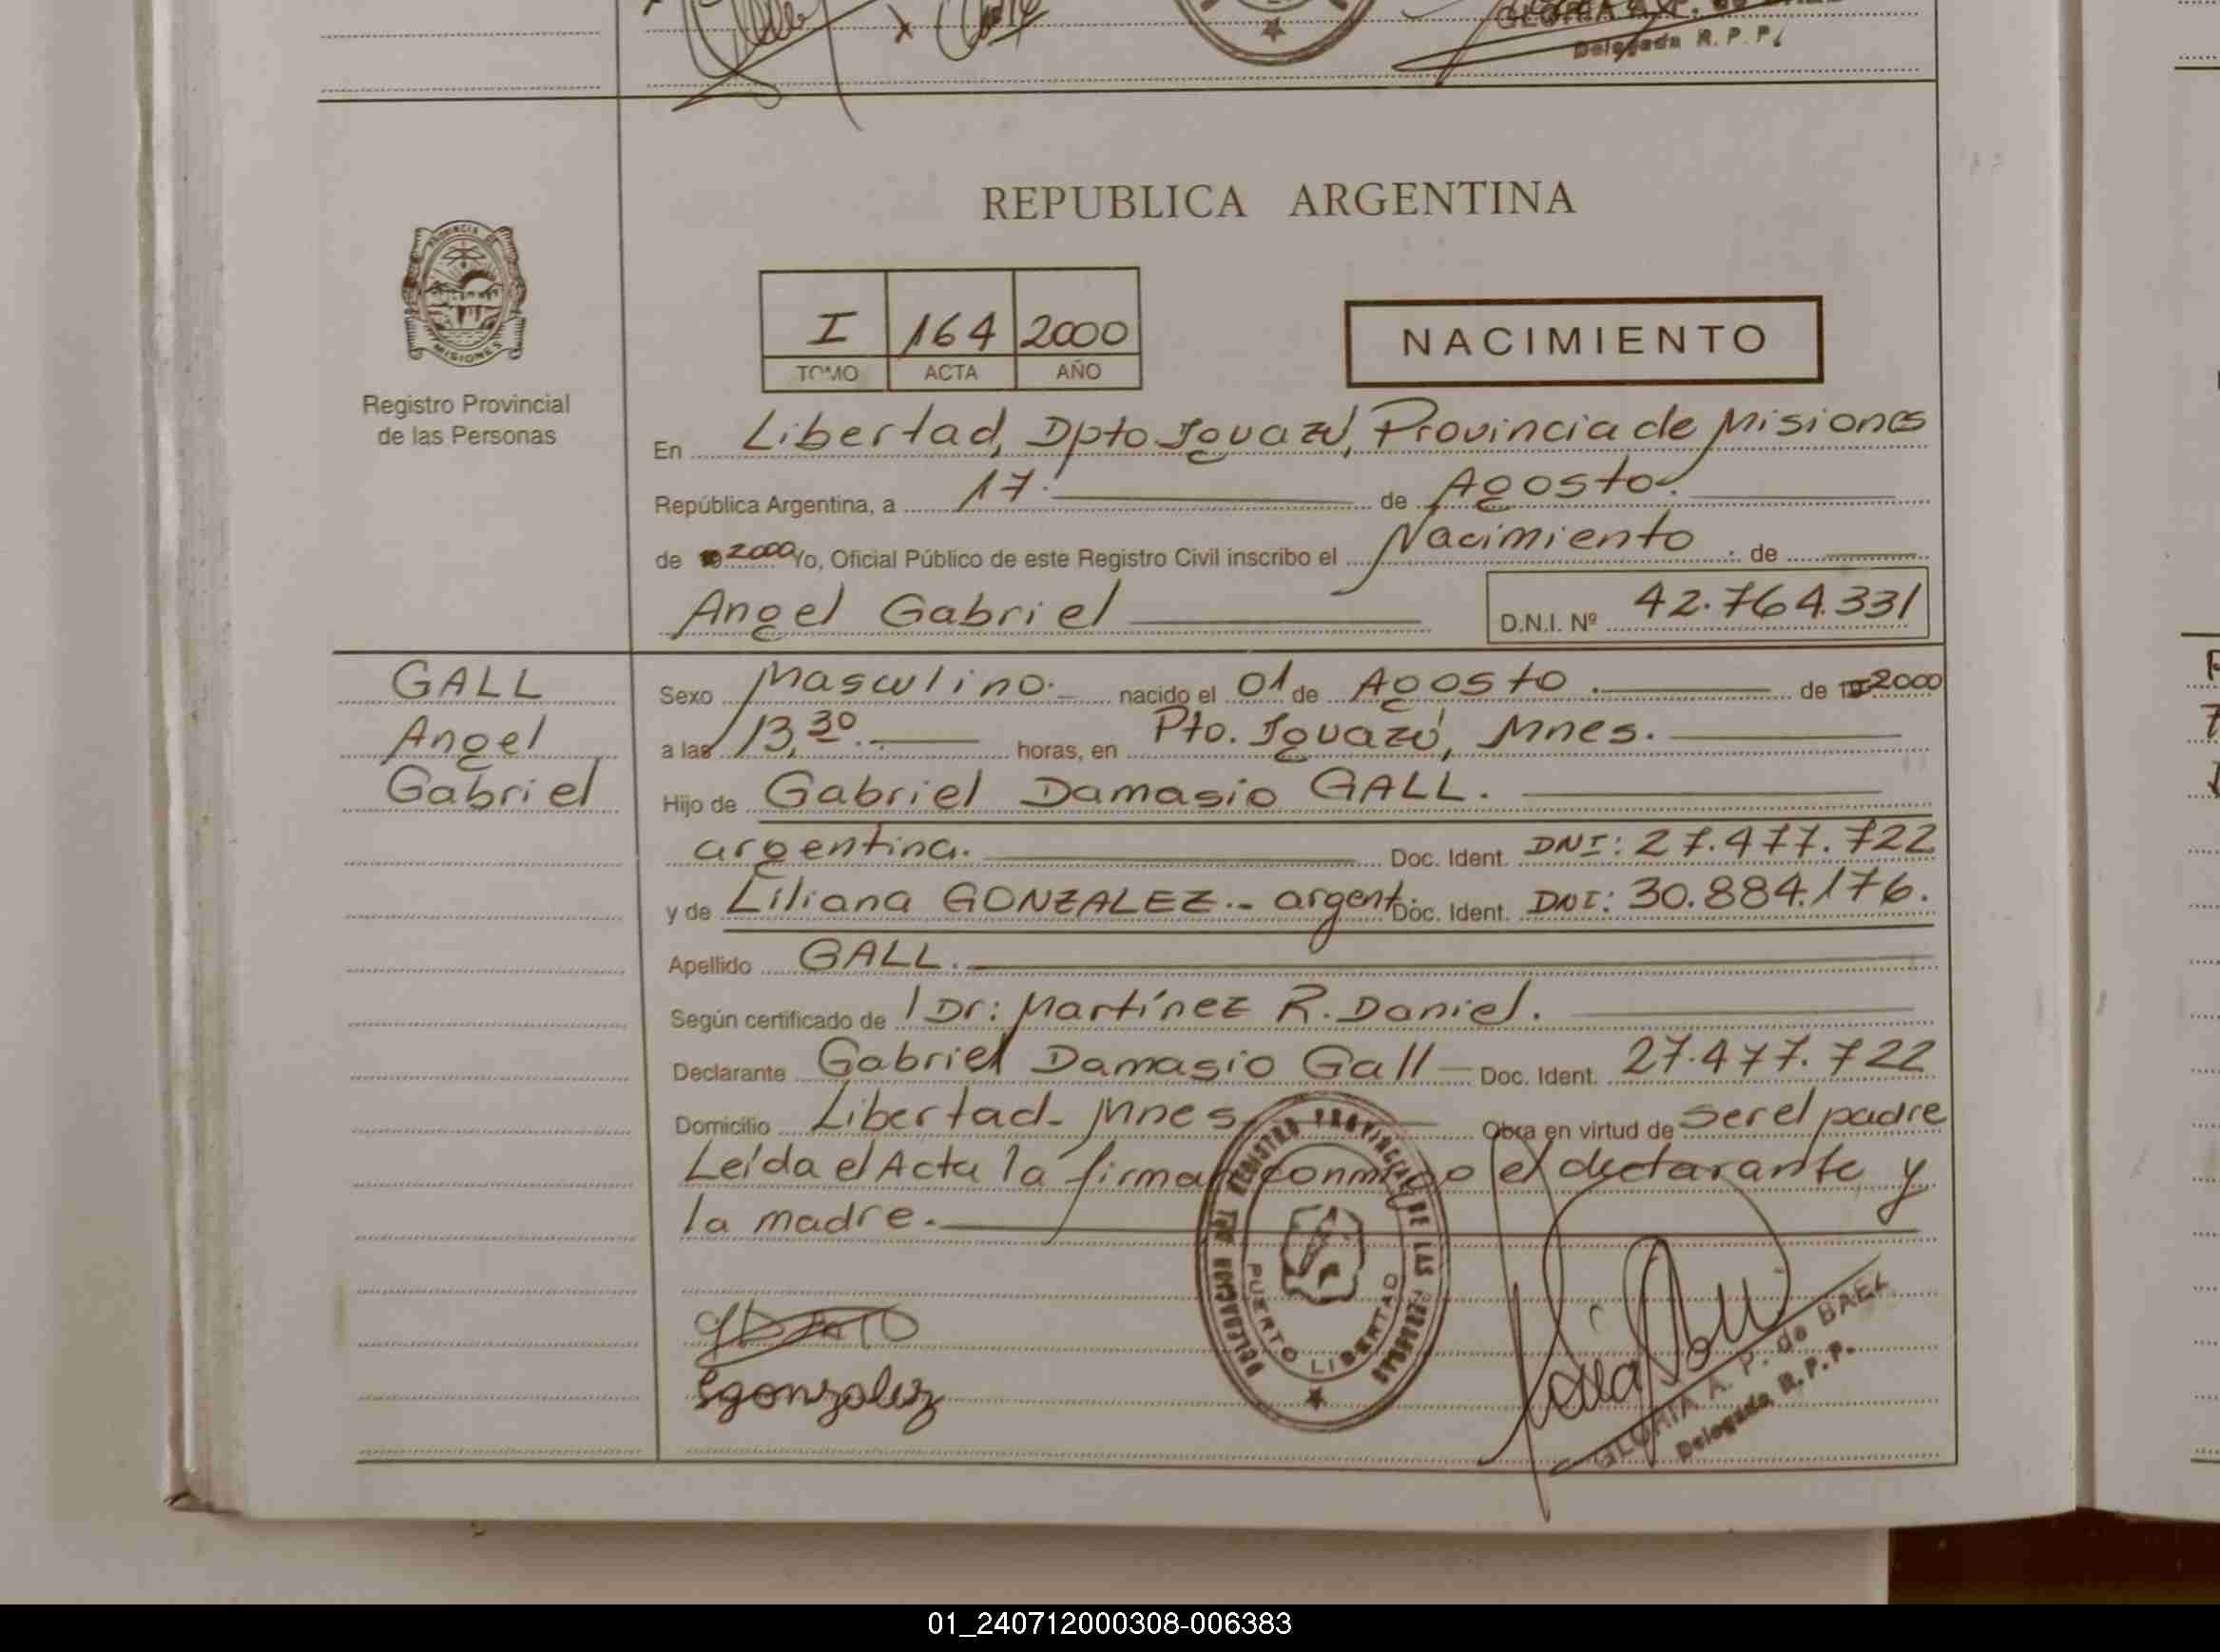 Delegada R. P. P.
REPUBLICA ARGENTINA
PROVINCIA DE
MISIONES
Registro Provincial
de las Personas
I 164 2000
TOMO ACTA AÑO
NACIMIENTO
En Libertad, Dpto Iguazú, Provincia de Misiones
República Argentina, a 17. de Agosto.
de 2000 Yo, Oficial Público de este Registro Civil inscribo el Nacimiento de
Angel Gabriel
D.N.I. Nº 42.764.331
GALL
Angel
Gabriel
Sexo Masculino. nacido el 01 de Agosto. de 2000
a las 13,30. horas, en Pto. Iguazú, Mnes.
Hijo de Gabriel Damasio GALL.
argentina. Doc. Ident. DNI: 27.477.722
y de Liliana GONZALEZ.- argent. Doc. Ident. DNI: 30.884.176.
Apellido GALL.
Según certificado de 1 Dr: Martínez R. Daniel.
Declarante Gabriel Damasio Gall Doc. Ident. 27.477.722
Domicilio Libertad- Mnes Obra en virtud de ser el padre
Leída el Acta la firman conmigo el declarante y
la madre.
DELEGACION DEL REGISTRO PROVINCIAL DE LAS PERSONAS
PUERTO LIBERTAD
Lgonzalez
GLORIA A. P. de BAEZ
Delegada R. P. P.
01_240712000308-006383